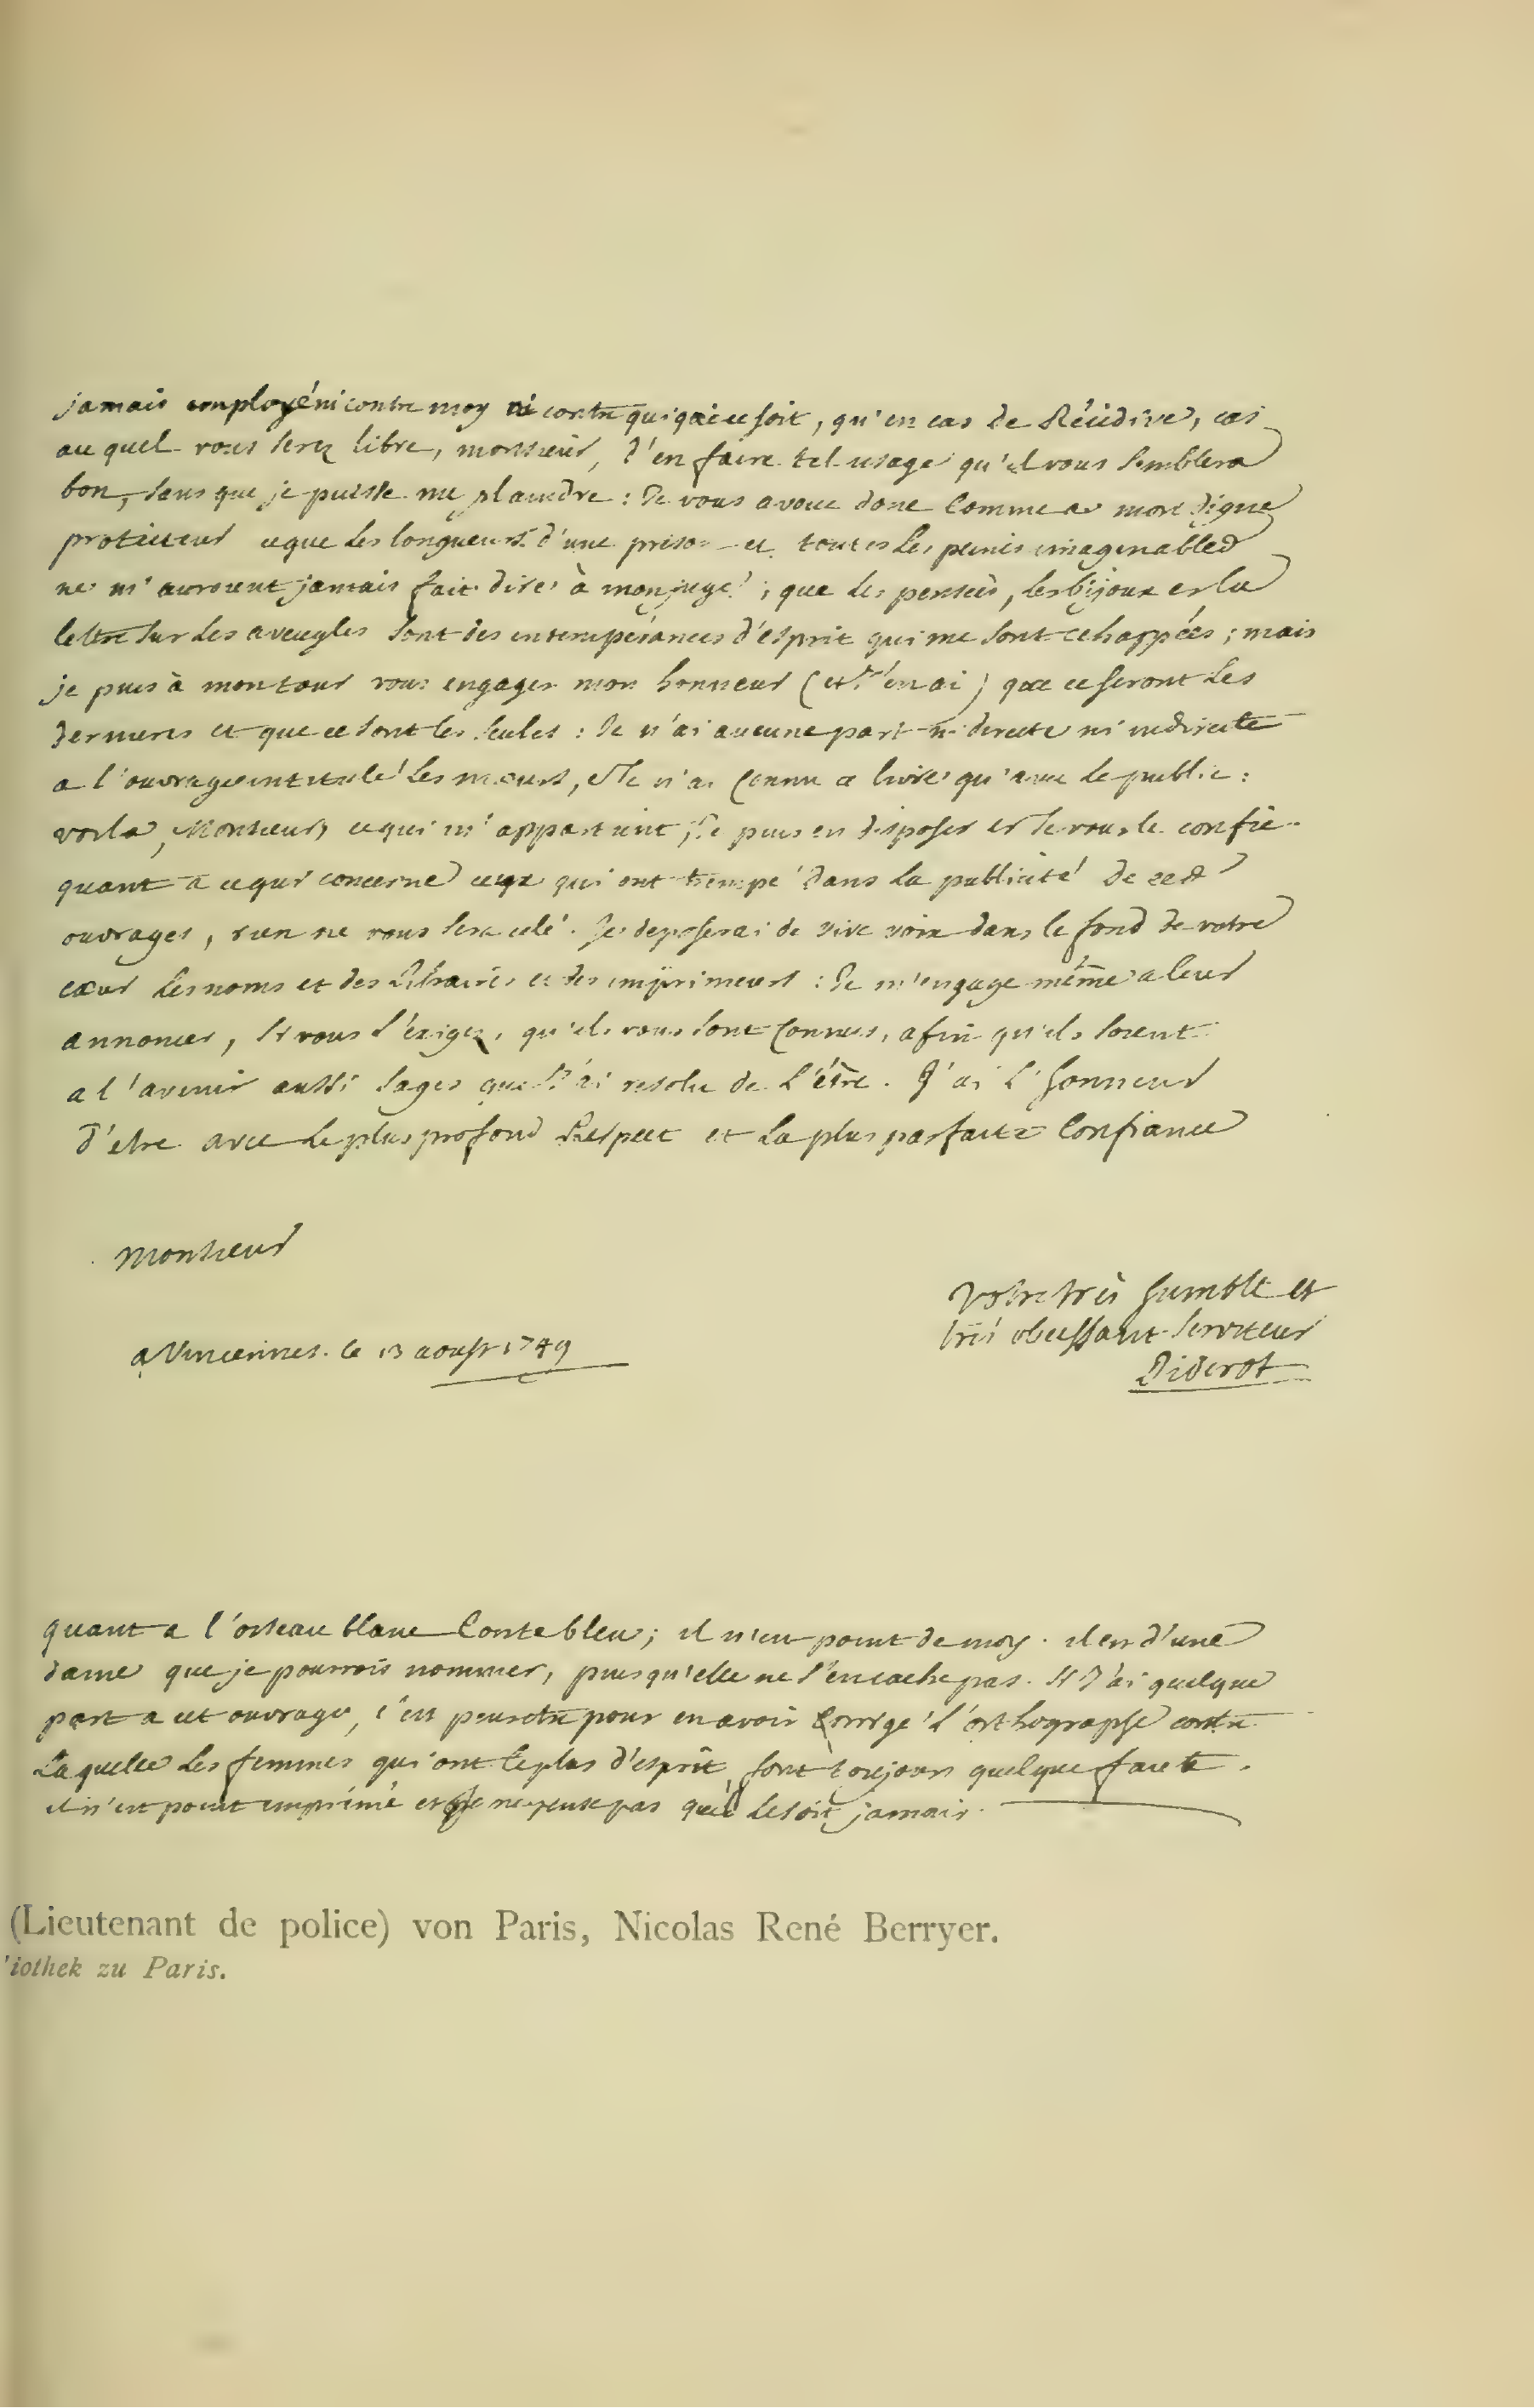 jamais employé ni contre moy ni contre qui que ce soit, qu'en cas de Récidive, cas
au quel vous serez libre, monsieur, d'en faire tel usage qu'il vous semblera
bon, sans que je puisse me plaindre : Je vous avoue donc comme a mon digne
protecteur ce que les longueurs d'une prison et toutes les peines imaginables
ne m'auroient jamais fait dire à mon juge ; que les pensées, les bijoux et la
lettre sur les aveugles sont des intempérances d'esprit qui me sont echappées ; mais
je puis à mon tour vous engager mon honneur (et j'en ai) que ce seront les
dernieres et que ce sont les seules : Je n'ai aucune part ni directe ni indirecte
a l'ouvrage intitulé Les mœurs, et Je n'ai connu ce livre qu'avec le public :
voila, Monsieur, ce qui m'appartient ; Je puis en disposer et Je vous le confie.
quant à ce qui concerne ceux qui ont trempé dans la publicité de ces
ouvrages, rien ne vous sera celé. Je deposerai de vive voix dans le fond de votre
cœur les noms et des Libraires et des imprimeurs : Je m'engage même a leur
annoncer, si vous l'exigez, qu'ils vous sont connus, afin qu'ils soient
a l'avenir aussi sages que J'ai resolu de l'être. J'ai l'honneur
d'etre avec le plus profond Respect et la plus parfaite Confiance
Monsieur
Votre très humble et
très obeissant serviteur
Diderot
a Vincennes. le 13 aoust 1749
quant a l'oiseau blanc Conte bleu ; il n'est point de moy. il est d'une
dame que je pourrois nommer, puisqu'elle ne s'en cache pas. Si J'ai quelque
part a cet ouvrage, c'est peutetre pour en avoir corrigé l'orthographe contre
Laquelle les femmes qui ont le plus d'esprit, font toujours quelque faute.
il n'est point imprimé et je ne pense pas qu'il le soit jamais.
(Lieutenant de police) von Paris, Nicolas René Berryer.
iothek zu Paris.